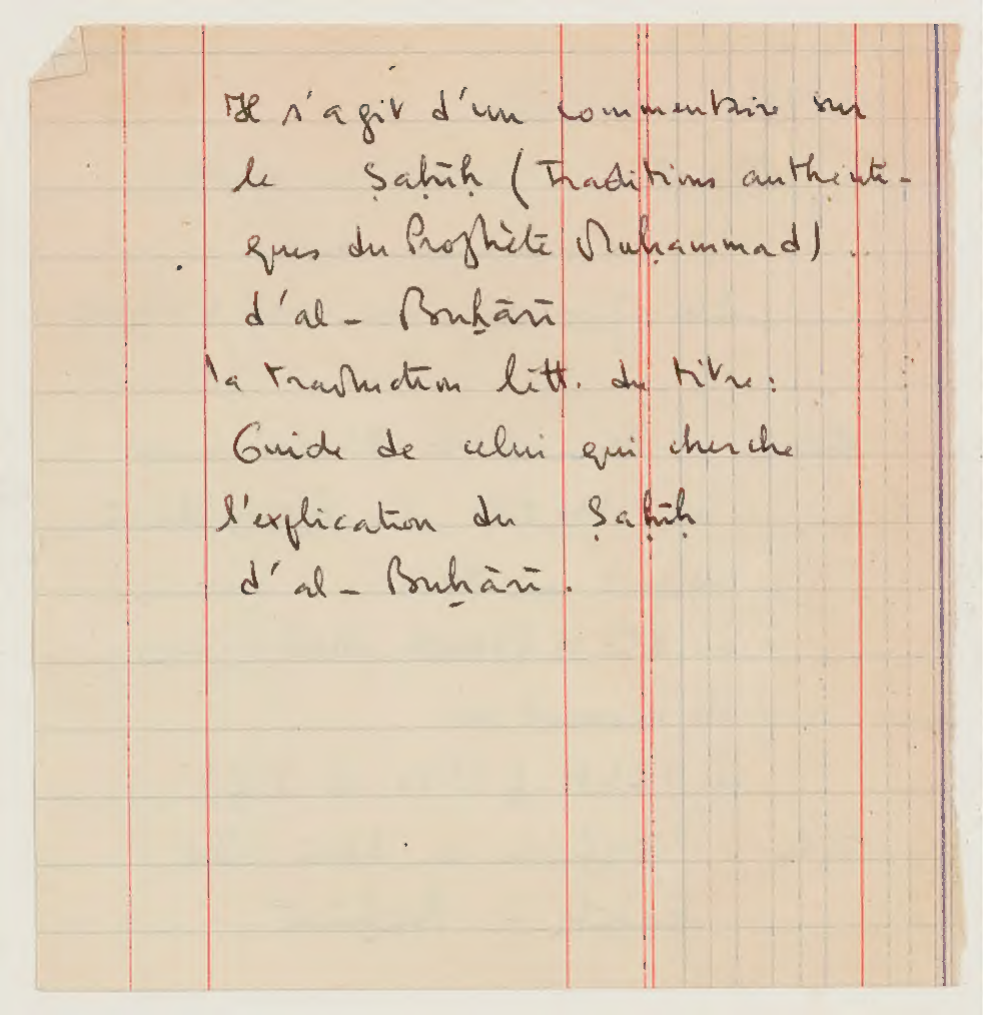 Il s'agit d'un commentaire sur
le Ṣaḥīḥ (Traditions authenti-
ques du Prophète Muḥammad)
d'al-Buḫārī
la traduction litt. du titre :
Guide de celui qui cherche
l'explication du Ṣaḥīḥ
d'al-Buḫārī.